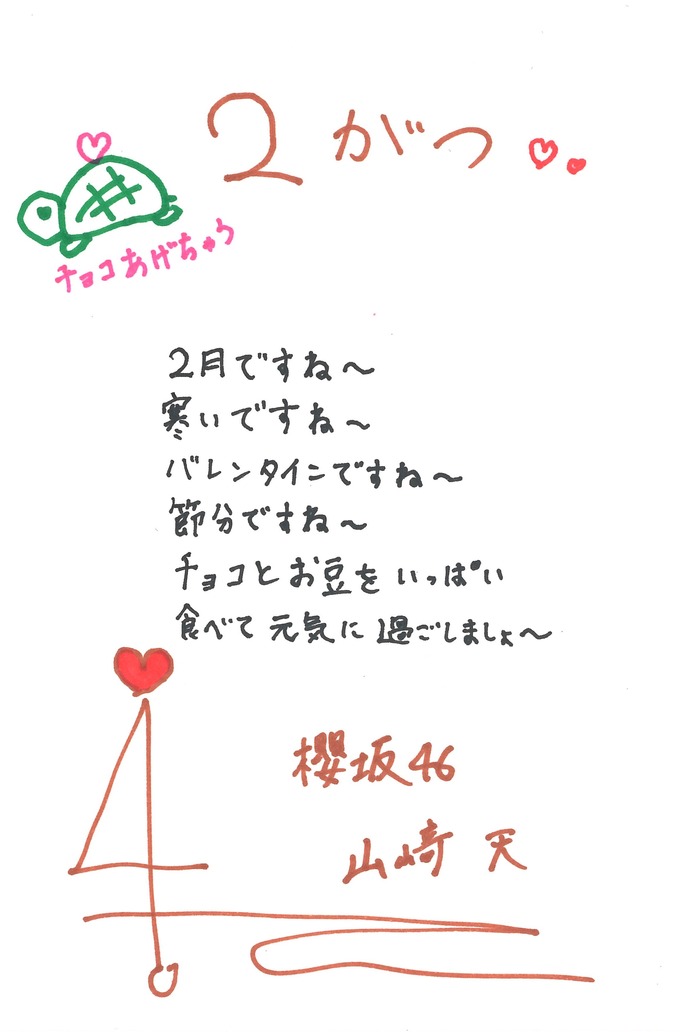 2がつ
チョコあげちゃう
2月ですね〜
寒いですね〜
バレンタインですね〜
節分ですね〜
チョコとお豆をいっぱい
食べて元気に過ごしましょ〜
櫻坂46
山﨑 天